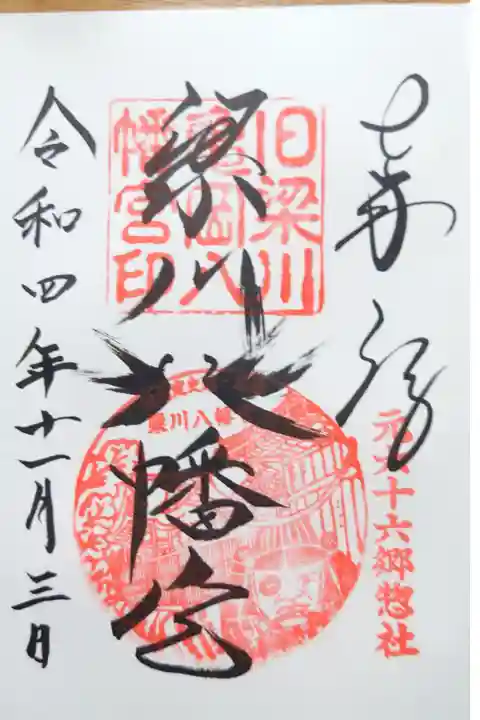 奉拝
元六十六郷惣社
旧梁川
亀岡八
幡宮印
梁川八幡宮
梁川八幡
令和四年十一月三日